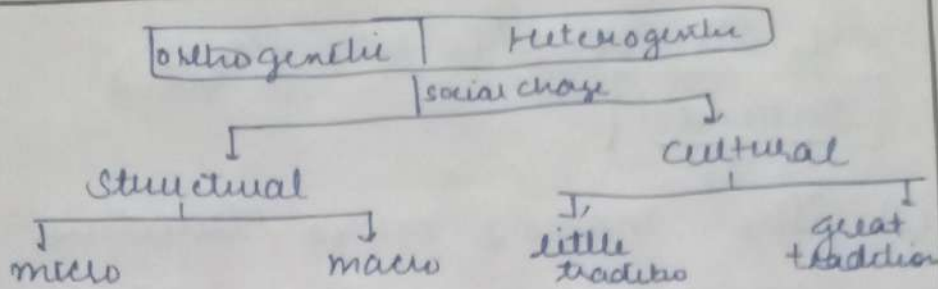 orthogenetic Heterogenetic
social change
structural cultural
micro macro little tradition great tradition